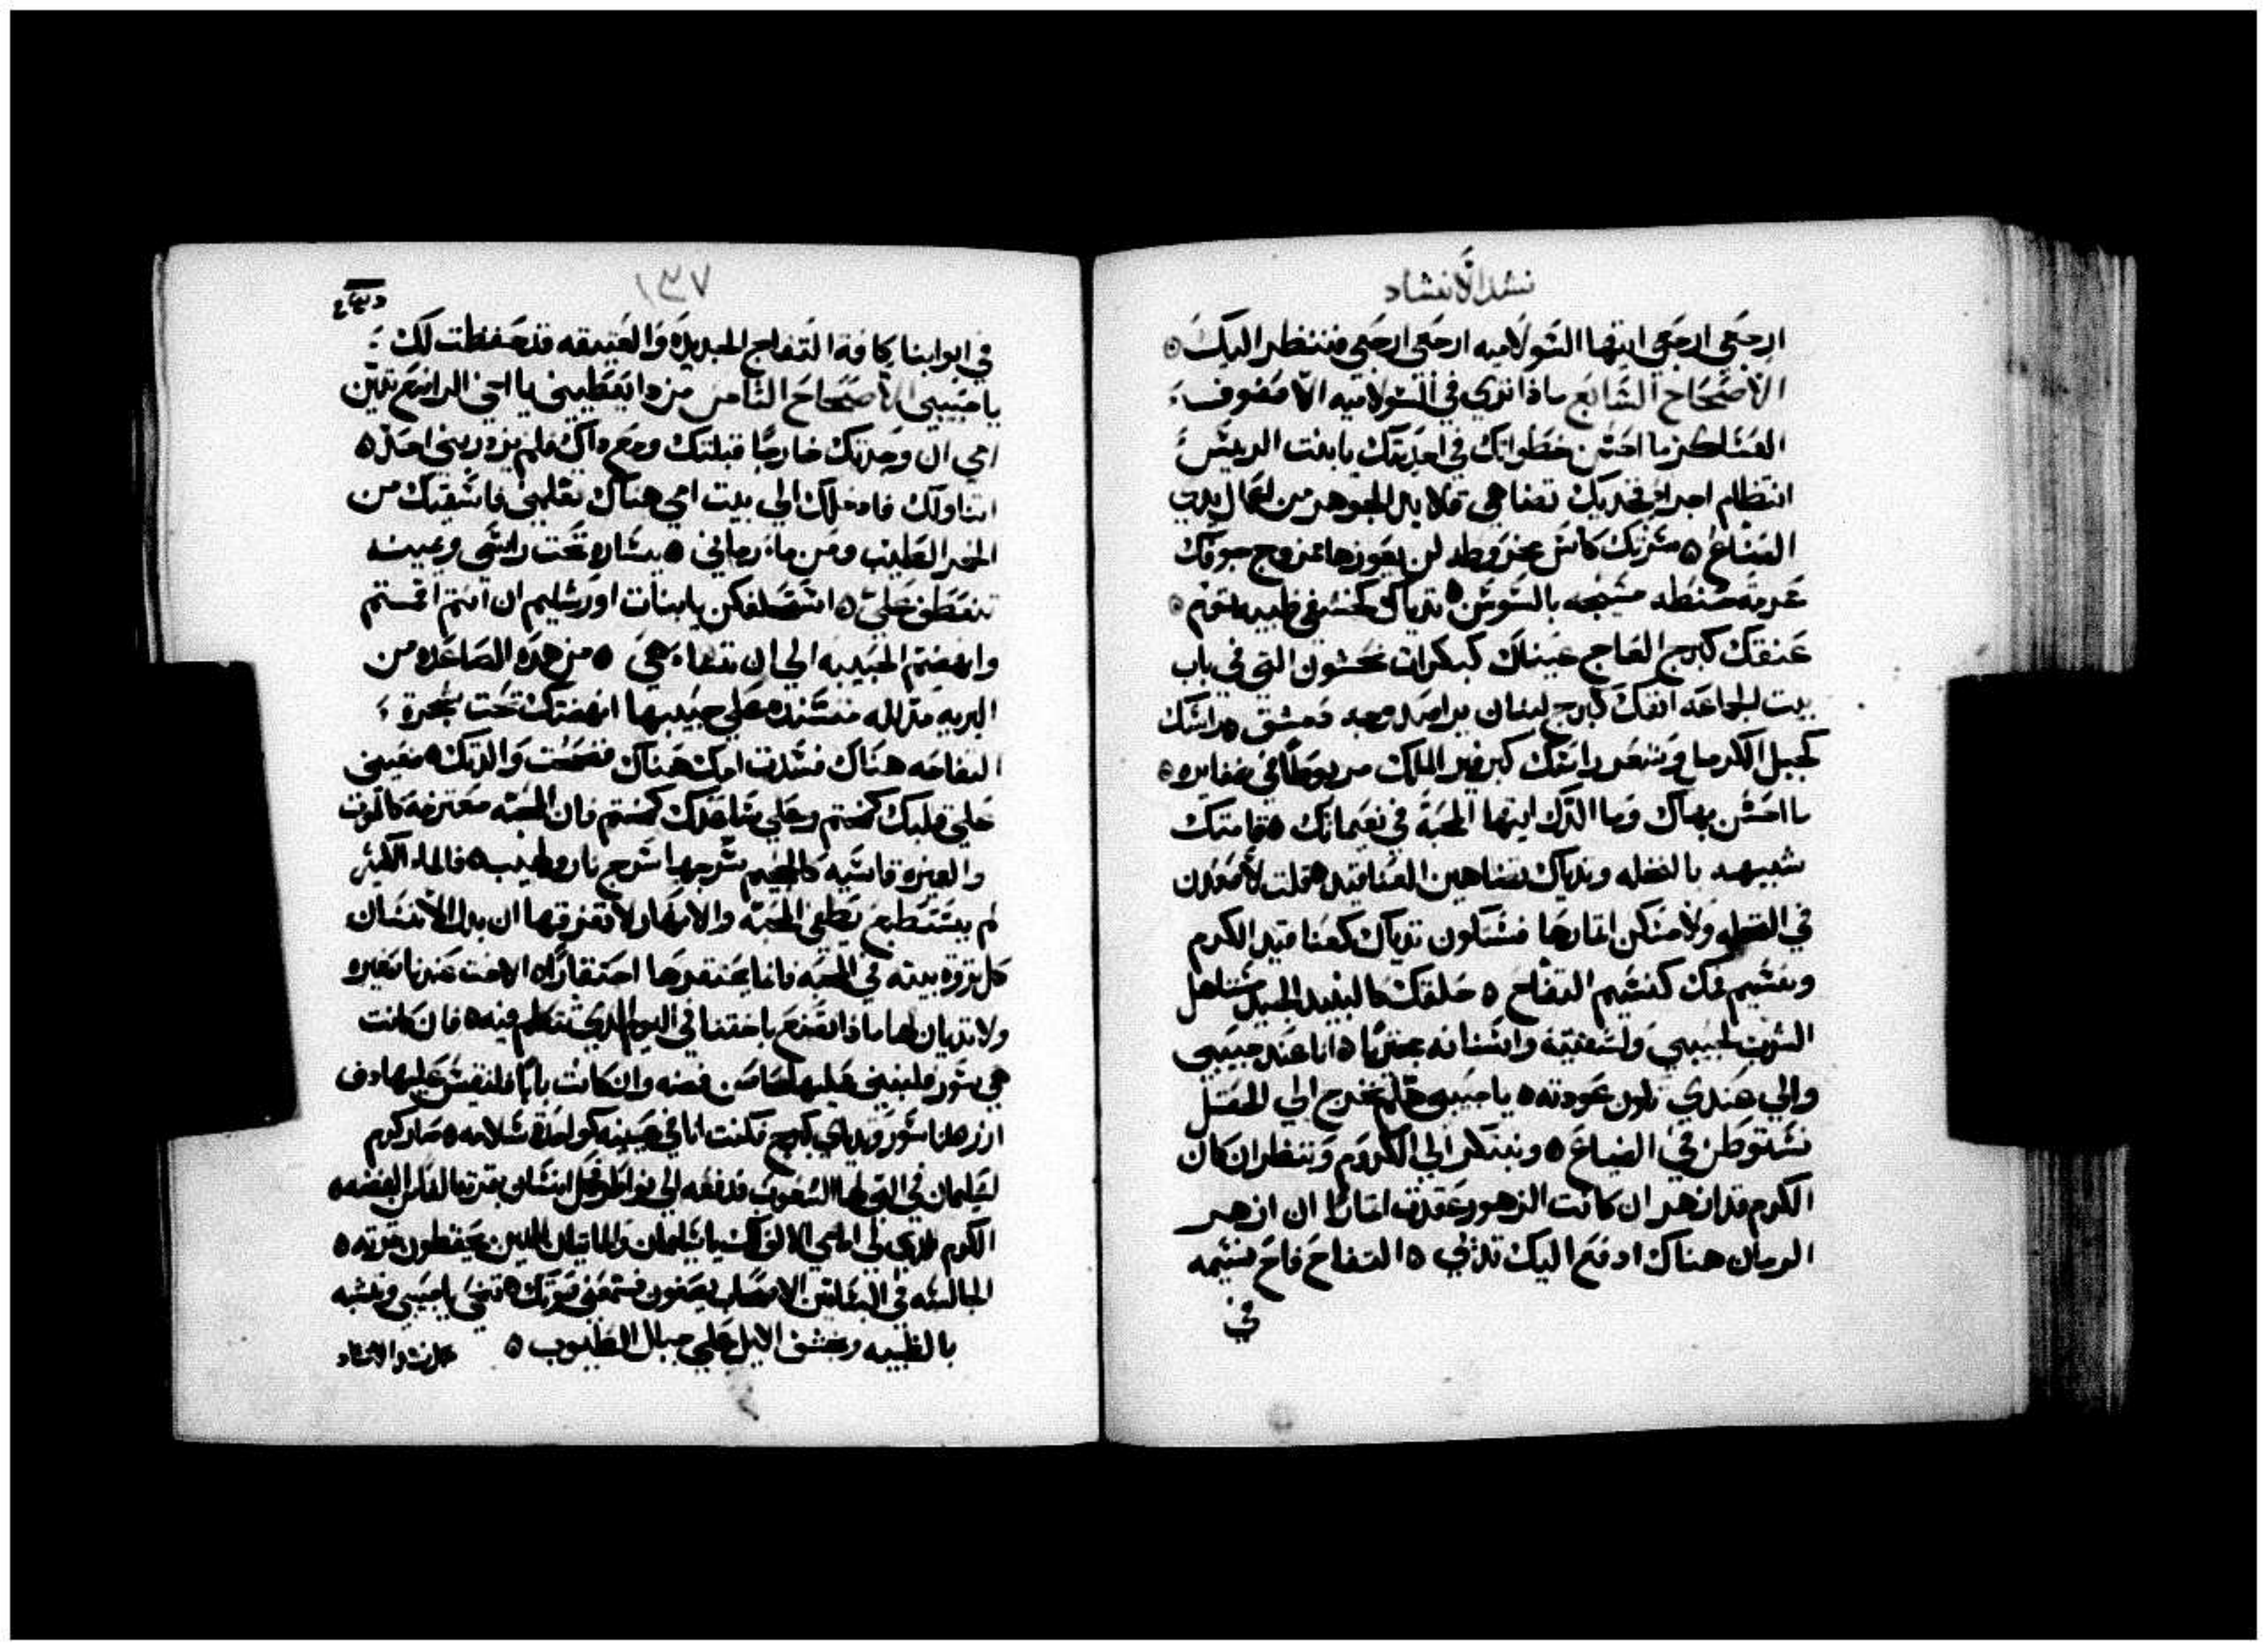 نشد الانشاد
ارجعي ارجعي ايتها السولاميه ارجعي ارجعي فننظر اليك ٥
الاصحاح السابع ماذا تري في السولاميه الا صفوف
العساكر ما احسن خطواتك في احديتك يا بنت الرييس
انتظام اجزا فخديك تضاهي قلايد الجوهر من اعمال يدي
الصناع ٥ سرتك كاس مخروطه لن يعوزها مزوج جوفك
عرمة حنطه مسيجه بالسوسن ٥ تدياك كخشفي ظبيه توم ٥
عنقك كبرج العاج عيناك كبكرات محشون التي في باب
بيت الجماعه انفك كبرج لبنان يراصد وجه دمشق ٥ راسك
كجبل الكرمل وشعر راسك كبرفير الملك مربوطا في ضفايره ٥
ما احسن بهاك وما الذك ايتها المحبة في نعيماتك ٥ قامتك
شبيهه بالنخله وتدياك تضاهين العناقيد ٥ قلت لاصعدن
في النخله ولامسكن اثمارها فستكون تدياك كعناقيد الكرم
ونسيم فمك كنسيم التفاح ٥ حلقك كالنبيد الجيد يتاهل
الشرب لحبيبي ولشفتيه واسنانه مجترا ٥ انا عند حبيبي
والي عندي تكون عودته ٥ يا حبيبي هلم نخرج الي الحقل
نستوطن في الضياع ٥ ونبتكر الي الكروم وننظر ان كان
الكرم قد ازهر ان كانت الزهور عقدت اثمارا ان ازهر
الرمان هناك ادفع اليك تديي ٥ التفاح فاح نسيمه
في
١٣٧
في ابوابنا كافة التفاح الجديده والعتيقه قد حفظت لك
يا حبيبي الاصحاح الثامن من دا يعطيني يا اخي الراضع تديين
امي ان وجدتك خارجا قبلتك ومع داك فلم يزدريني احد ٥
اتناولك فادخلك الي بيت امي هناك تعلمني فاسقيك من
الخمر المطيب ومن ماء رماني ٥ يساره تحت راسي ويمينه
تنعطف علي ٥ استحلفكن يا بنات اورشليم ان انتم اقمتم
وانهضتم الحبيبه الي ان تشاء هي ٥ من هده الصاعده من
البريه مدلله مستنده علي حبيبها انهضتك تحت شجرة
التفاحه هناك فسدت امك هناك فضحت والدتك ٥ ضعيني
علي قلبك كختم وعلي ساعدك كختم فان المحبه معتزمه كالموت
والغيره قاسيه كالجحيم سرجها سرج نار ولهيب ٥ فالماء الكثير
لم يستطع يطفي المحبه والانهار لا تغرقها ان بدل الانسان
كل ثروة بيته في المحبه فانما يحتقرها احتقارا ٥ الاخت عندنا صغيره
ولا تديان لها ماذا نصنع باختنا في اليوم الدي نتكلم فيه ٥ فان كانت
هي سور فلنبني عليها من فضه وان كانت بابا فلنقش عليها دف
ارز ٥ انا سور وتدياي كبرج فكنت انا في عينيه كواجدة سلامه ٥ صار كرم
لسليمان في التي لها الشعوب فدفعه الي نواطر كل انسان بثمرته الفا من الفضه ٥
الكرم الدي لي امامي الالف لك يا سليمان والمايتان للدين يحفظون ثمرته ٥
الجالسه في البساتين الاصحاب يصغون فسمعني صوتك ٥ تنحي يا حبيبي وتشبه
بالظبيه وخشف الايل علي جبال الطيوب ٥
كمل نشد الانشاد